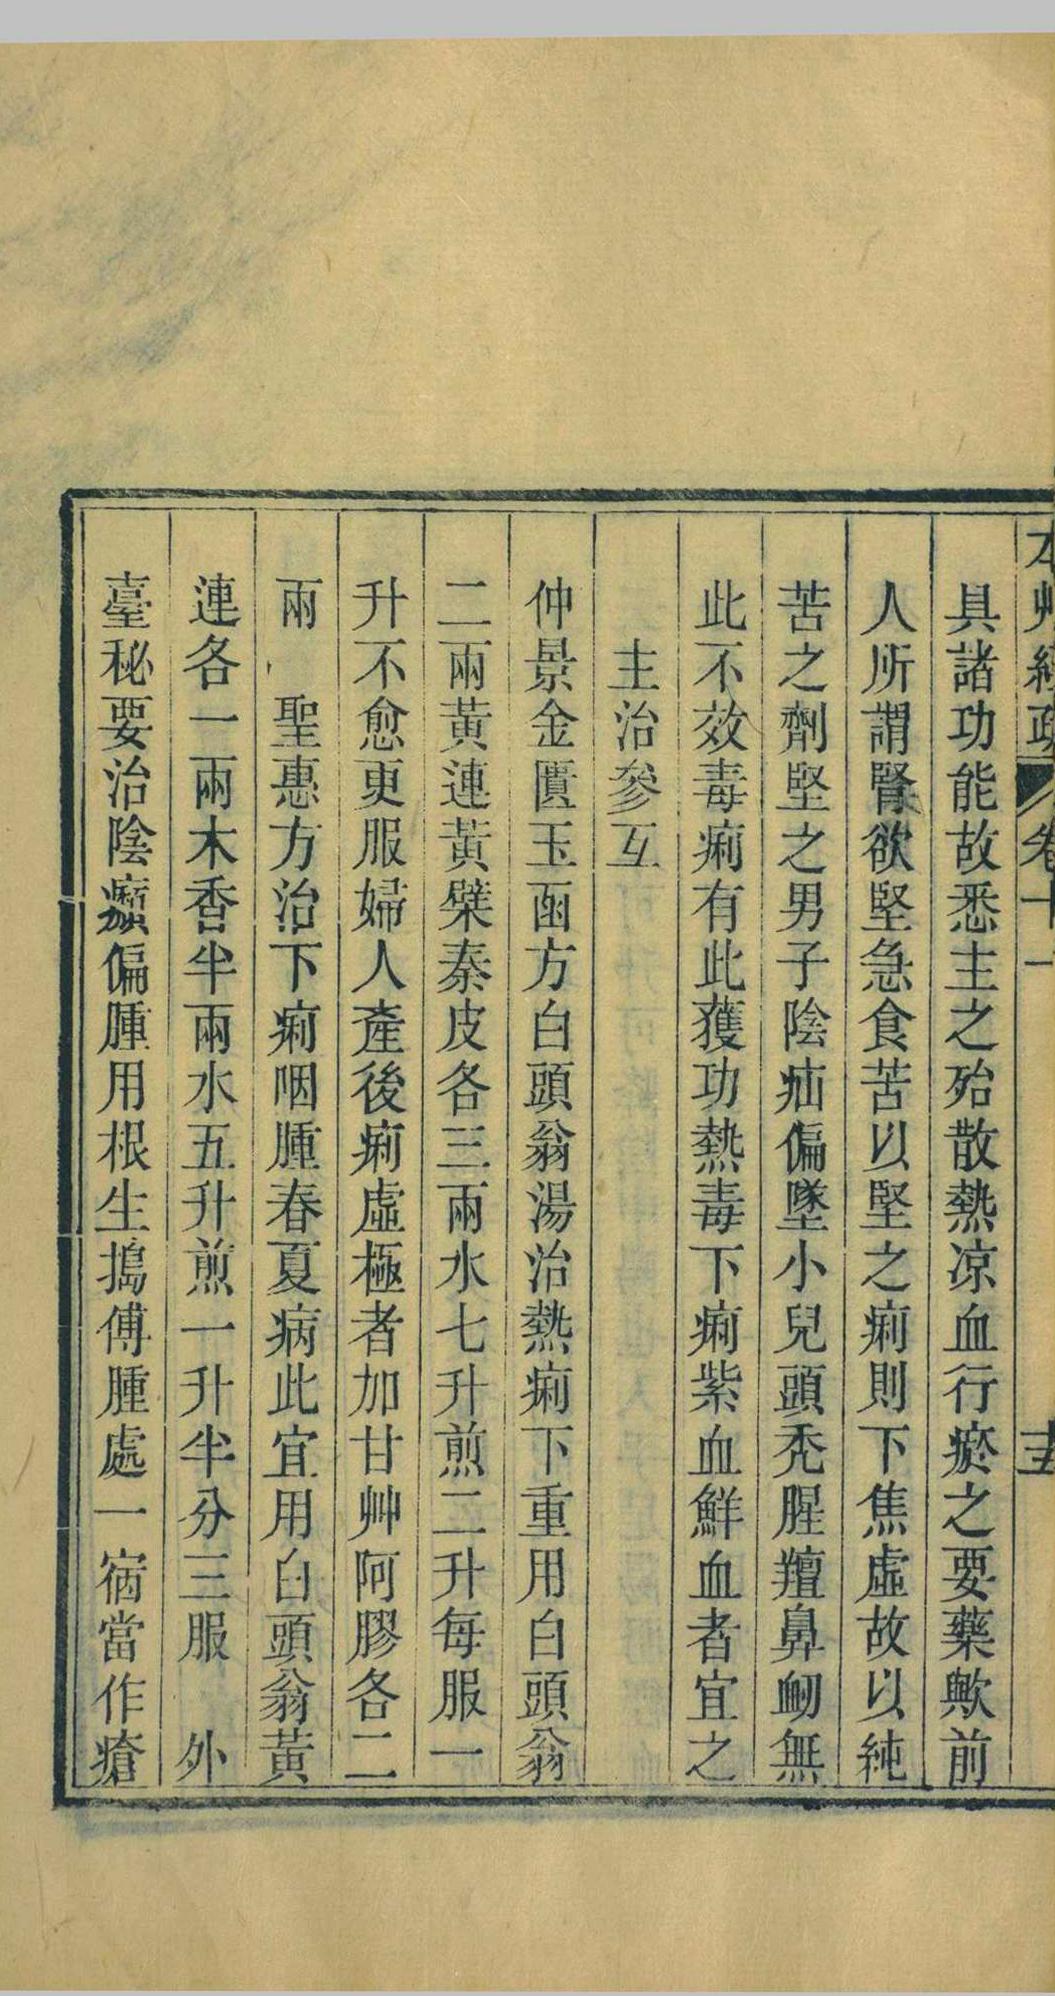 本艸經疏 卷十一 十五
具諸功能故悉主之殆散熱凉血行瘀之要藥歟前
人所謂腎欲堅急食苦以堅之痢則下焦虛故以純
苦之劑堅之男子陰疝偏墜小兒頭禿腥羶鼻衂無
此不效毒痢有此獲功熱毒下痢紫血鮮血者宜之
主治參互
仲景金匱玉函方白頭翁湯治熱痢下重用白頭翁
二兩黃連黃檗秦皮各三兩水七升煎二升每服一
升不愈更服婦人產後痢虛極者加甘艸阿膠各二
兩 聖惠方治下痢咽腫春夏病此宜用白頭翁黃
連各一兩木香半兩水五升煎一升半分三服 外
臺秘要治陰㿗偏腫用根生搗傅腫處一宿當作瘡